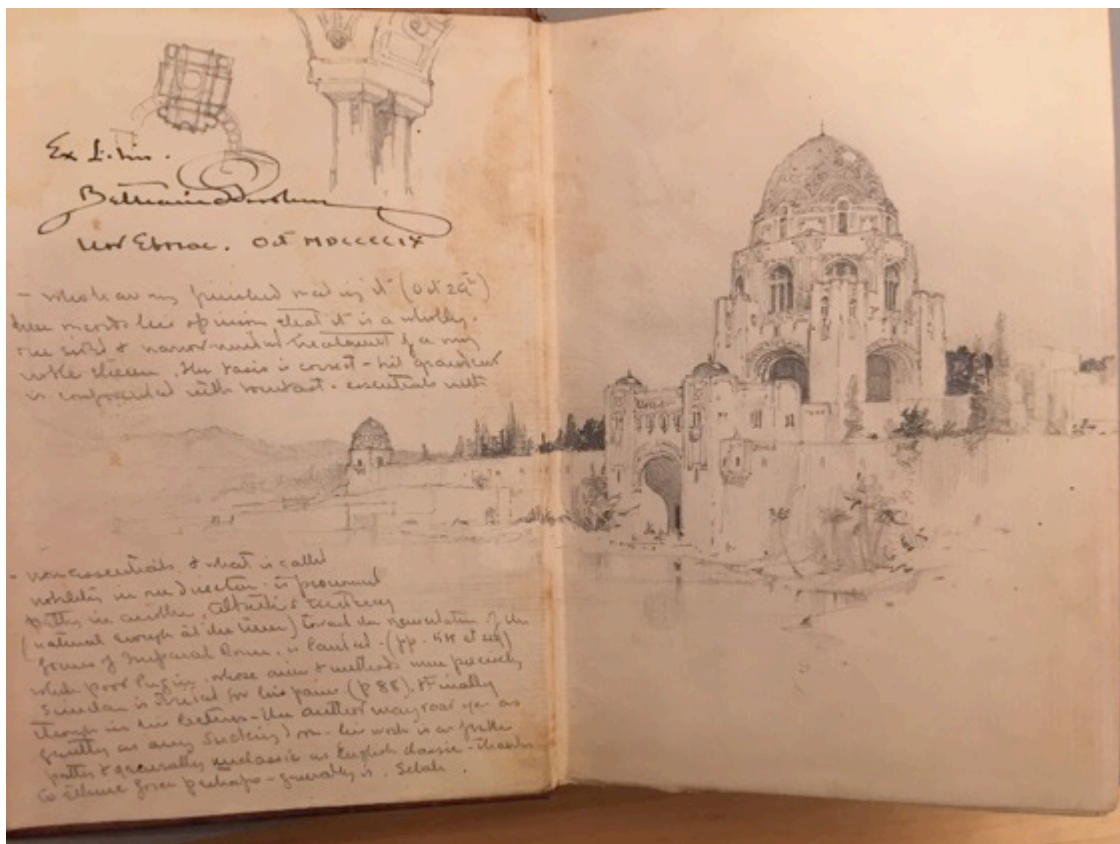 Ex Libris.
Bertram Goodhue
Nov Eborac. Oct MDCCCCIX
- who having finished reading it (Oct 29th)
here records his opinion that it is a wholly
one sided & narrow minded treatment of a very
noble theme. The basis is correct - but grandeur
is compounded with - essentials with
- non-essentials, & what is called
nobility in one direction is pronounced
in another.
(natural enough at the time) toward the of the
forms of Imperial Rome, is lauded - (pp. et seq)
while poor Pugin, whose aims & methods were precisely
similar is for his pains (p 88). & Finally
though in his lectures - the author may roar you as
gently as any sucking dove - his work is as
& generally unclassic as English classic - thanks
to perhaps - generally is. Selah.